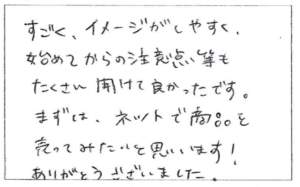 すごく、イメージがしやすく、
始めてからの注意点等も
たくさん聞けて良かったです。
まずは、ネットで商品を
売ってみたいと思います!
ありがとうございました。